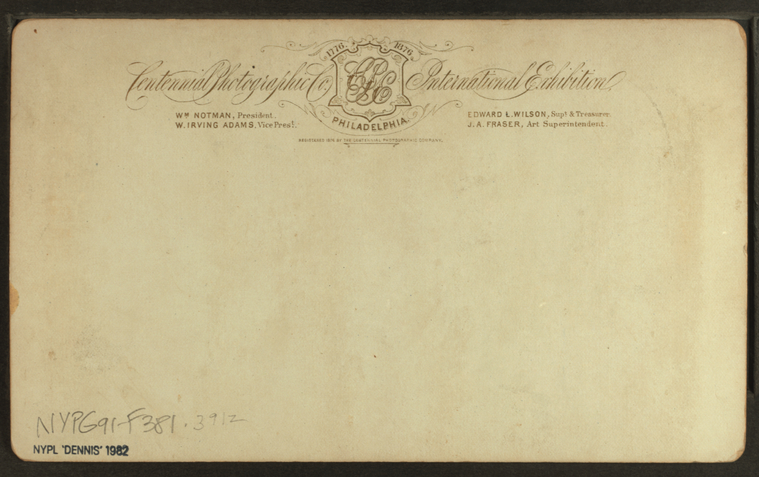 1776. 1876.
Centennial Photographic Co. CPC International Exhibition
PHILADELPHIA.
Wm NOTMAN, President.
W. IRVING ADAMS, Vice Prest.
EDWARD L. WILSON, Supt & Treasurer
J. A. FRASER, Art Superintendent.
REGISTERED 1876 BY THE CENTENNIAL PHOTOGRAPHIC COMPANY.
NYPG91-F381.
NYPL "DENNIS" 1982